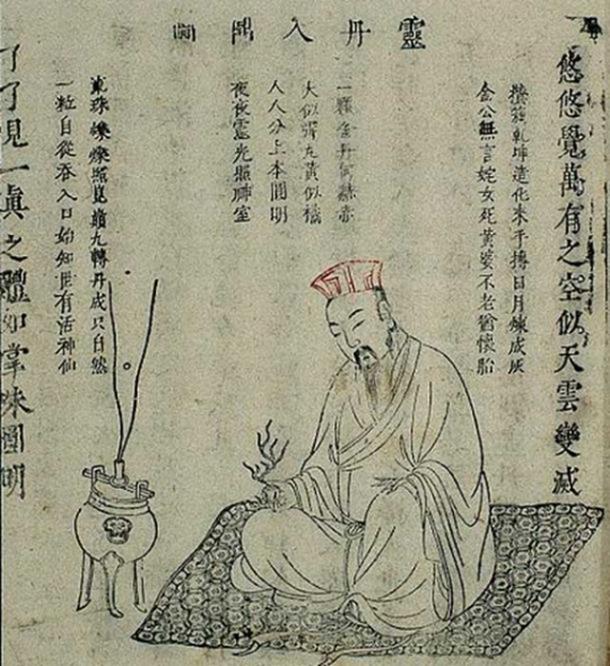 靈丹入鼎圖
悠悠覺萬有之空似天雲變滅
乾坤造化來手摶日月煉成灰
金公無言姹女死黃婆不老猶懷胎
一顆金丹何赫赤
大似彈丸黃似橘
人人分上本圓明
夜夜靈光照神室
珠爍爍照崑巔九轉丹成只自然
一粒自從吞入口始知世有活神仙
了了見一眞之體如掌珠圓明